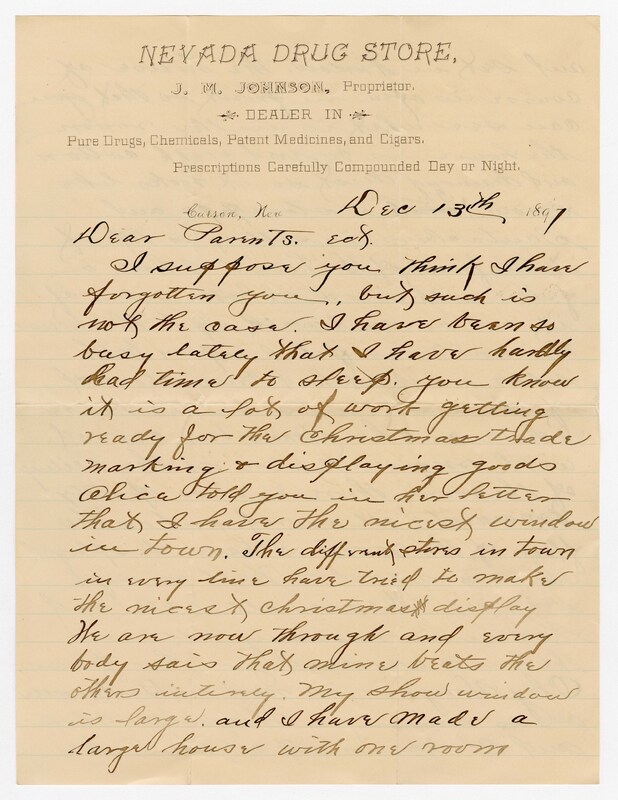 NEVADA DRUG STORE,
J. M. JOHNSON, Proprietor.
DEALER IN
Pure Drugs, Chemicals, Patent Medicines, and Cigars.
Prescriptions Carefully Compounded Day or Night.
Carson, Nev Dec 13th 1897
Dear Parents. ect.
I suppose you think I have
forgotten you, but such is
not the case. I have been so
busy lately that I have hardly
had time to sleep. you know
it is a lot of work getting
ready for the Christmas trade
marking & displaying goods
Alica told you in her letter
that I have the nicest window
in town. The different stores in town
in every line have tried to make
the nicest christmas display
We are now through and every
body sais that mine beats the
others intirely. My show window
is large. and I have made a
large house with one room